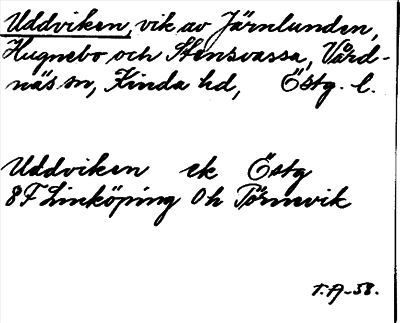 Uddviken, vik av Järnlunden,
Hugnebo och Stensvassa, Vård-
näs sn, Kinda hd, Östg. l.
Uddviken ek Östg
8F Linköping 0h Törnevik
T.A-58.